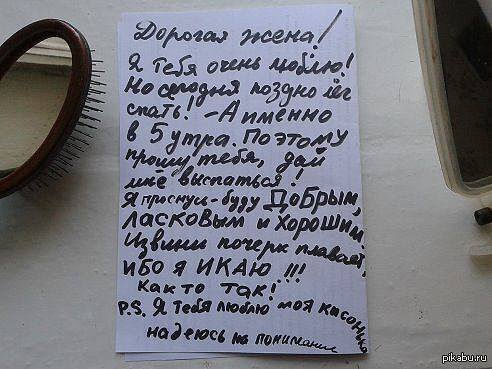 Дорогая жена!
Я тебя очень люблю!
Но сегодня поздно лёг
спать! - А именно
в 5 утра. Поэтому
прошу тебя, дай
мне выспаться!
Я проснусь - буду ДОБРЫМ,
ЛАСКОВЫМ и ХОРОШИМ.
Извини почерк плавает,
ибо я ИКАЮ!!!
Как то так!
P.S. Я тебя люблю моя касонька
надеюсь на понимание
pikabu.ru